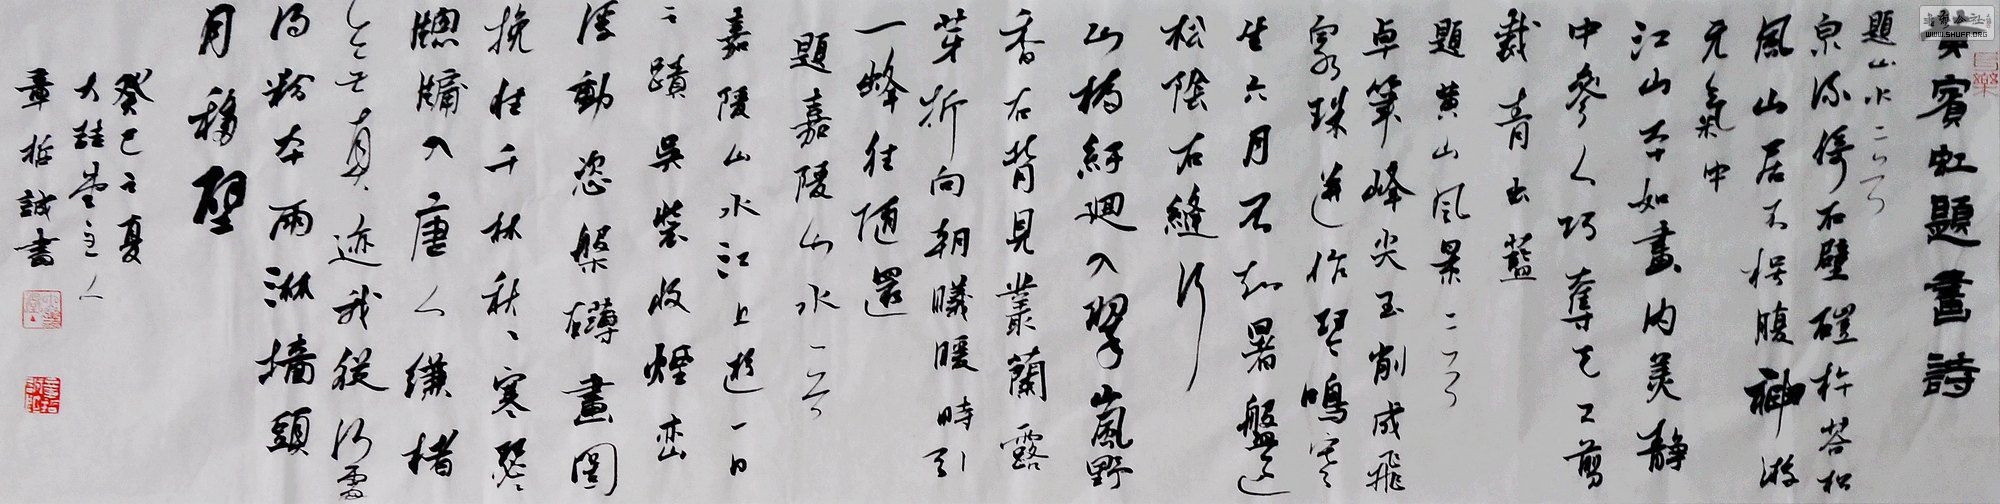 黄賓虹題畫詩
題山水二首
泉流倚石壁礎杵答松
風山居不楔腹神游
元氣中
江山本如畫内美静
中參人巧奪天工剪
裁青出藍
題黄山風景二首
卓筆峰尖玉削成飛
瀑珠迸作琴鳴寒
生六月不知暑盤過
松陰石縫行
山橋紆迴入翠嵐野
香石背見叢蘭露
芽折向朝曦暖時引
一蜂往随還
題嘉陵山水一首
嘉陵山水江上遊一日
之蹟吳裝收煙巒
浮動恣槃礴畫图
挽住千林秋秋寒琴
牕牖入唐人縑楮
亡真迹我從行雪
得粉本雨淋墻頭
月移壁
癸巳之夏
大囍堂主人
章哲誠書
WWW.SHUFR.ORG